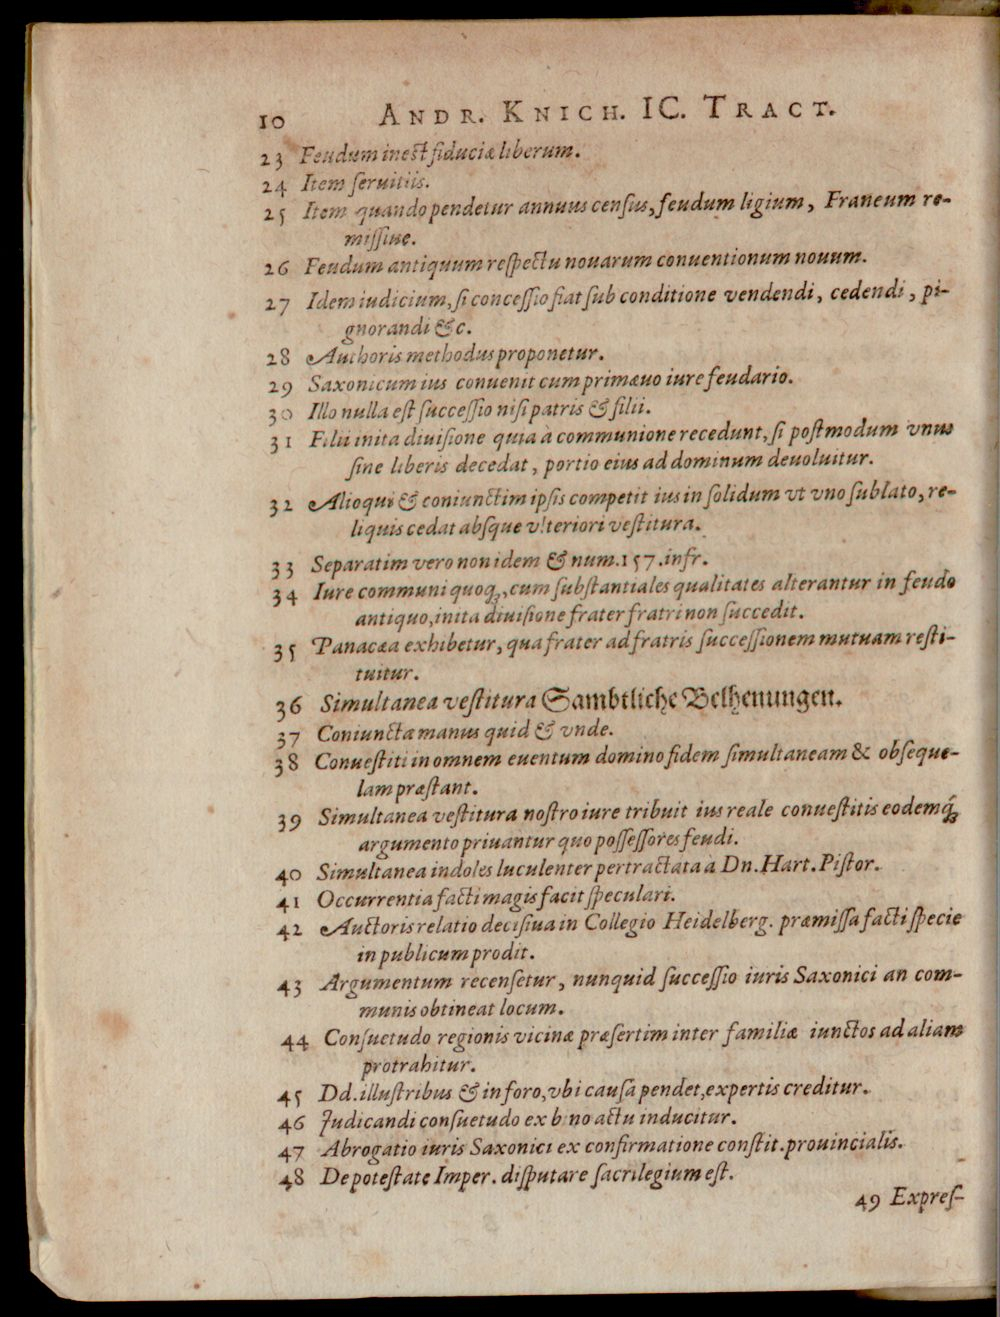 10 ANDR. KNICH. IC. TRACT.
23 Feudum inest fiduciæ liberum.
24 Item ſeruitiis.
25 Item quando pendetur annuus cenſus, feudum ligium, Franeum re-
miſſiue.
26 Feudum antiquum reſpectu nouarum conuentionum nouum.
27 Idem iudicium, ſi conceſſio fiat ſub conditione vendendi, cedendi, pi-
gnorandi &c.
28 Authoris methodus proponetur.
29 Saxonicum ius conuenit cum primæuo iure feudario.
30 Illo nulla eſt ſucceſſio niſi patris & filii.
31 Filii inita diuiſione quia à communione recedunt, ſi poſtmodum vnus
ſine liberis decedat, portio eius ad dominum deuoluitur.
32 Alioqui & coniunctim ipſis competit ius in ſolidum vt vno ſublato, re-
liquis cedat abſque vlteriori veſtitura.
33 Separatim vero non idem & num. 157. infr.
34 Iure communi quoq;, cum ſubſtantiales qualitates alterantur in feudo
antiquo, inita diuiſione frater fratri non ſuccedit.
35 Panacæa exhibetur, qua frater ad fratris ſucceſſionem mutuam reſti-
tuitur.
36 Simultanea veſtitura Sambtliche Belhenungen.
37 Coniunctæ manus quid & vnde.
38 Conueſtiti in omnem euentum domino fidem ſimultaneam & obſeque-
lam præſtant.
39 Simultanea veſtitura noſtro iure tribuit ius reale conueſtitis eodemq́;
argumento priuantur quo poſſeſſores feudi.
40 Simultanea indoles luculenter pertractata à Dn. Hart. Piſtor.
41 Occurrentia facti magis facit ſpeculari.
42 Auctoris relatio deciſiua in Collegio Heidelberg. præmiſſa facti ſpecie
in publicum prodit.
43 Argumentum recenſetur, nunquid ſucceſſio iuris Saxonici an com-
munis obtineat locum.
44 Conſuetudo regionis vicinæ præſertim inter familiæ iunctos ad aliam
protrahitur.
45 Dd. illuſtribus & in foro, vbi cauſa pendet, expertis creditur.
46 Judicandi conſuetudo ex b no actu inducitur.
47 Abrogatio iuris Saxonici ex confirmatione conſtit. prouincialis.
48 De poteſtate Imper. diſputare ſacrilegium eſt.
49 Expreſ-